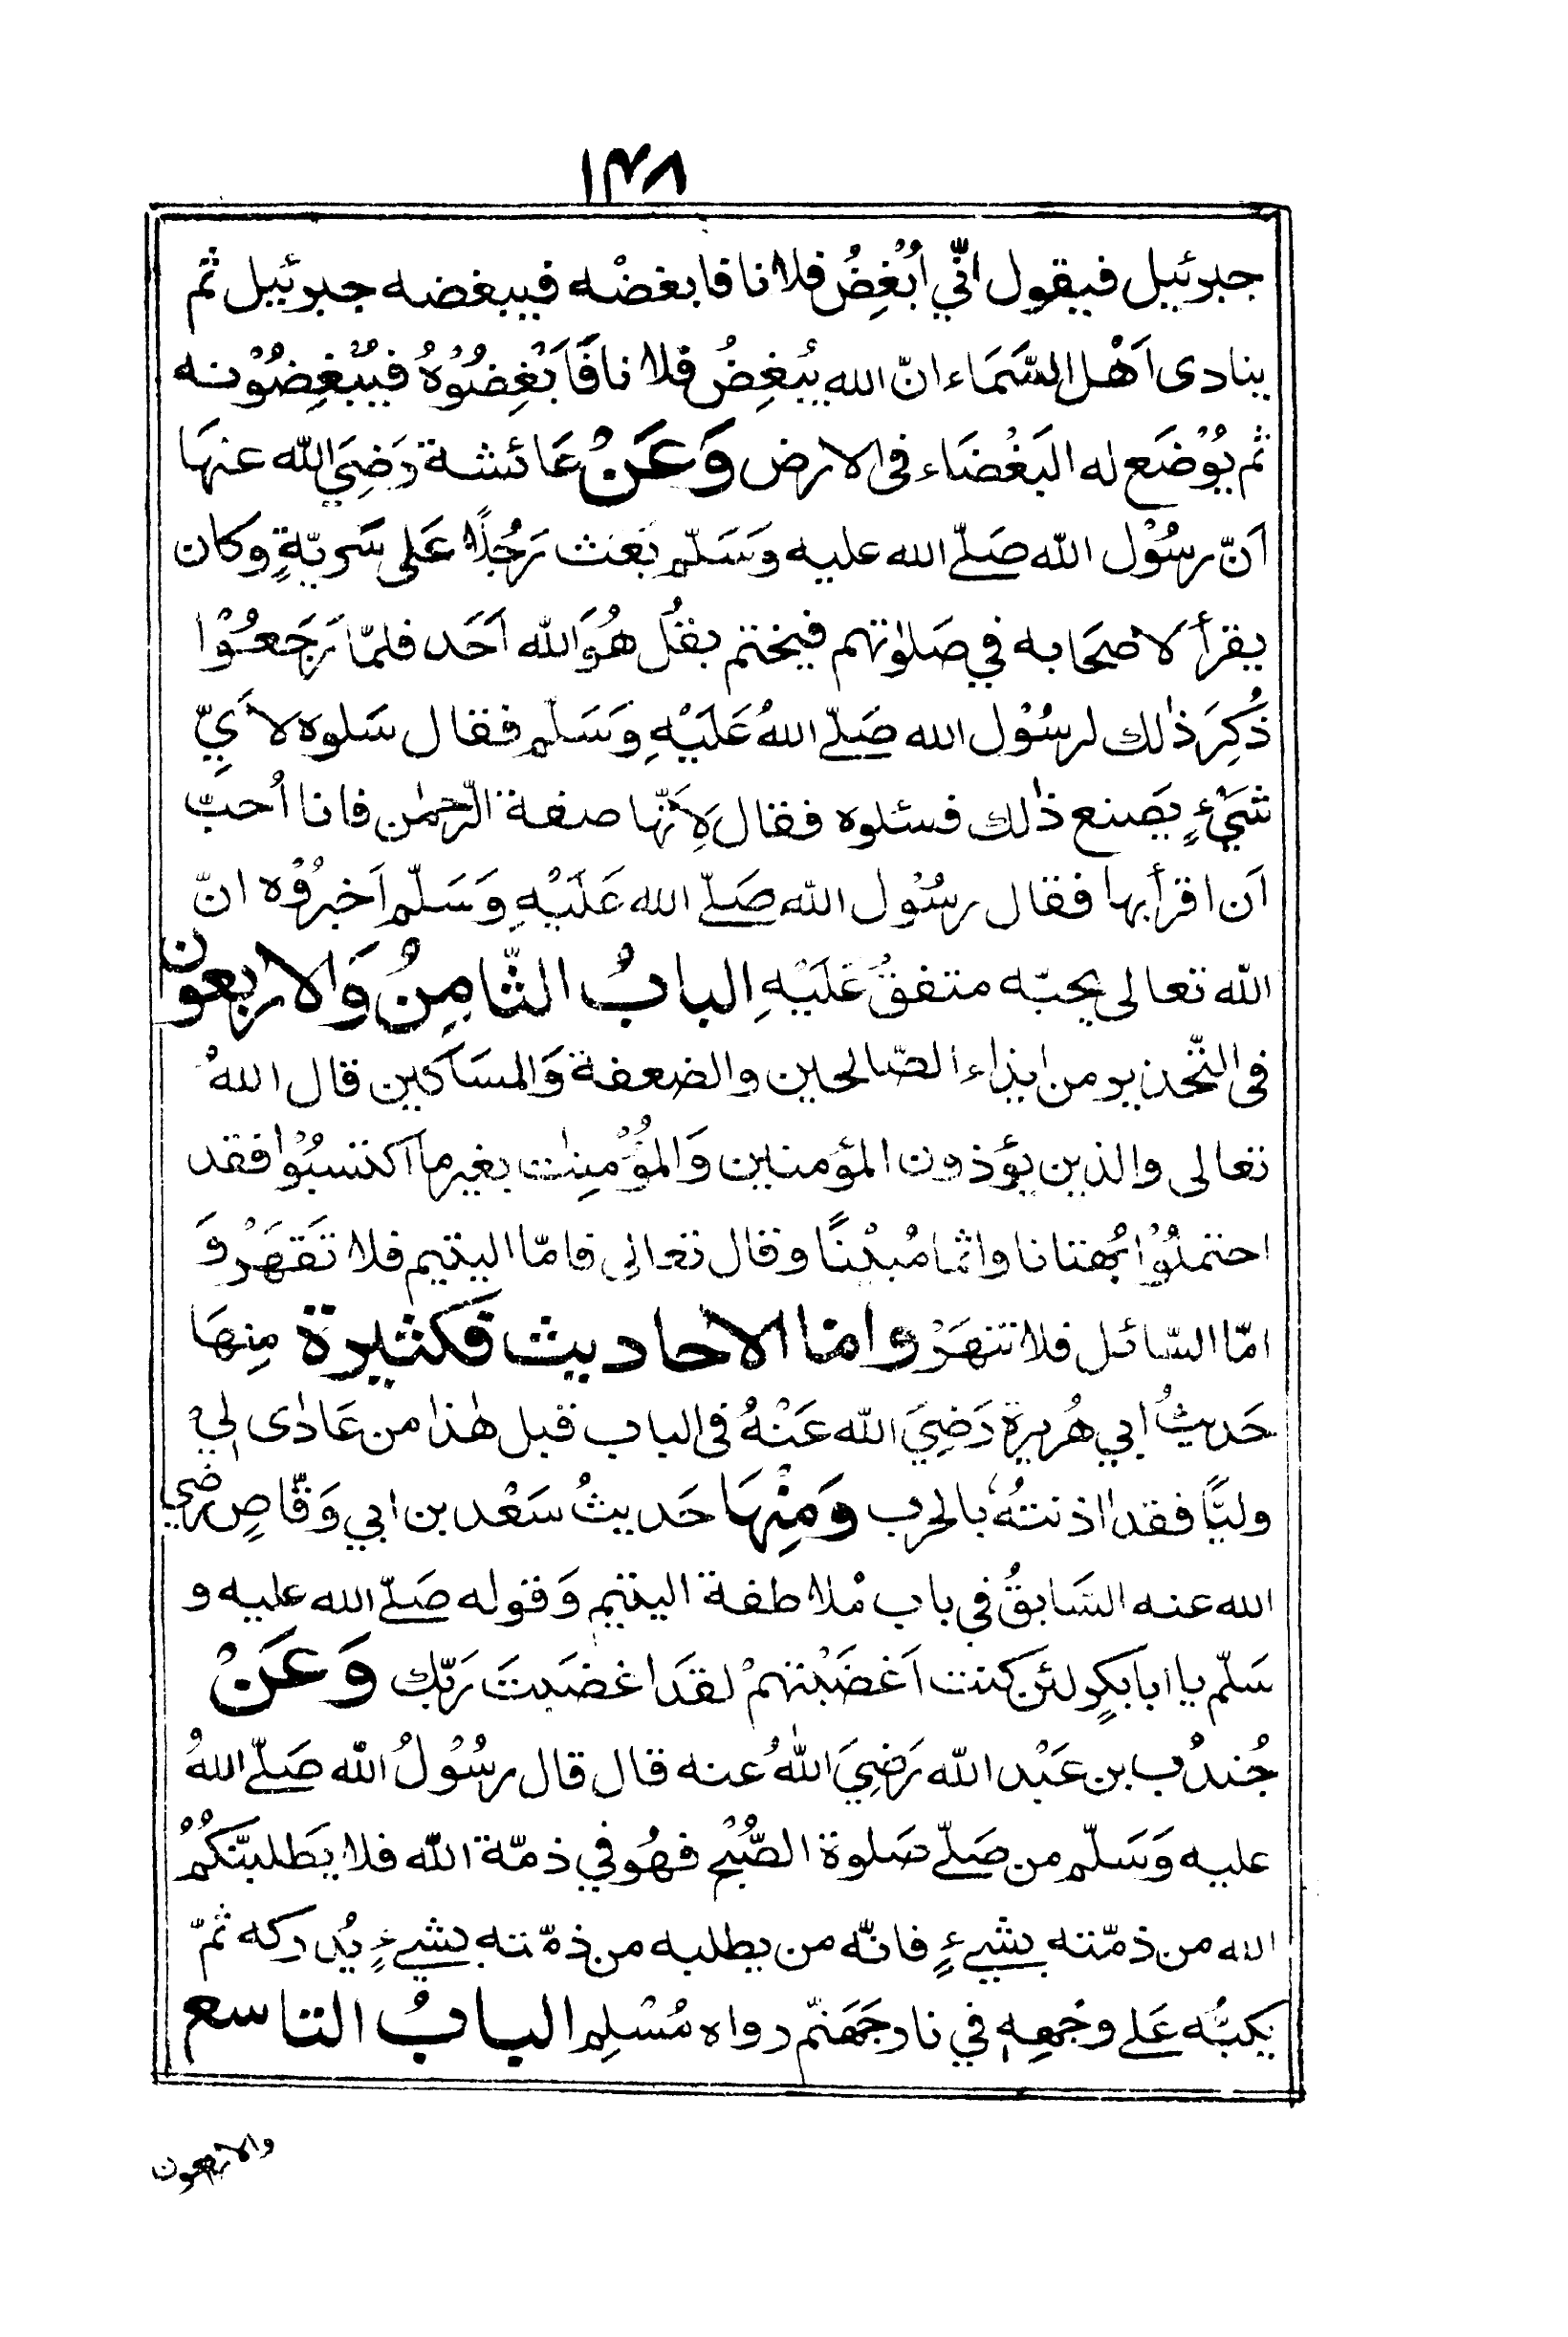 ١٤٨
جبرئيل فيقول انّي اُبْغِضُ فلانا فابغضْه فيبغضه جبرئيل ثم
ينادى اَهْل السَّمَاء انّ الله يُبغِضُ فلانا فَاَبْغِضُوْهُ فيُبْغِضُوْنه
ثم يُوْضَع له البَغْضَاء فى الارض وَعَنْ عَائشة رَضِيَ الله عنهَا
اَنّ رسُوْل الله صَلّى الله عليه وَسَلّم بَعَث رَجُلًا عَلى سَريّةٍ وكان
يقرأ لاصْحَابه في صَلوٰتهم فيختم بقُل هُوَالله اَحَد فلمّا رَجَعُوْا
ذُكِرَ ذٰلك لرسُوْل الله صَلّے اللهُ عَلَيْهِ وَسَلّم فقال سَلوه لأَيِّ
شَيْءٍ يَصنع ذٰلك فسئلوه فقال لِأَنّها صفة الرّحمٰن فانا اُحبّ
اَن اقرأ بها فقال رسُوْل الله صَلّے الله عَلَيْهِ وَسَلّم اَخبرُوْه انّ
الله تعالى يحبّه متفقُ عَلَيْهِ الباب الثّامِنُ وَالاربعون
فى التّحذير من ايذاء الصّالحين والضعفة وَالمسَاكين قال اللهُ
تعالى والذين يؤذون المؤمنين وَالمُؤْمِنٰت بغير ما اكتسبُوْا فقد
احتملُوْا بُهتانا واثما مُبِيْنًا وقال تعالى فامّا اليتيم فلا تَقهَرْ وَ
امّا السّائل فلا تنهَرْ واما الاحاديث فكثيرة مِنهَا
حَديثُ ابي هُريرة رَضِيَ الله عَنْهُ فى الباب قبل هٰذا من عَادٰى لي
وليًّا فقد اٰذنتُهُ بالحرب وَمِنْهَا حَديثُ سَعْد بن ابي وَقّاصٍ رضي
الله عنه السَابقُ في باب مُلاطفة اليتيم وَقوله صَلّے الله عليه و
سَلّم يا ابا بكرٍ لئن كنت اَغضَبْتهمْ لقدَ اغضَبتَ رَبّك وَعَنْ
جُندُب بن عَبْد الله رَضِيَ اللهُ عنه قال قال رسُوْلُ الله صَلّے اللهُ
عليه وَسَلّم من صَلّے صَلوة الصُّبْح فهُو في ذمّة الله فلا يَطلبنّكُمُ
الله من ذمّته بشيءٍ فانّه من يطلبه من ذمّته بشيءٍ يُدركه ثُمّ
يكبُّه عَلے وجهِهٖ في نار جَهَنّم رواه مُسْلِم البابُ التاسع
والاربعون